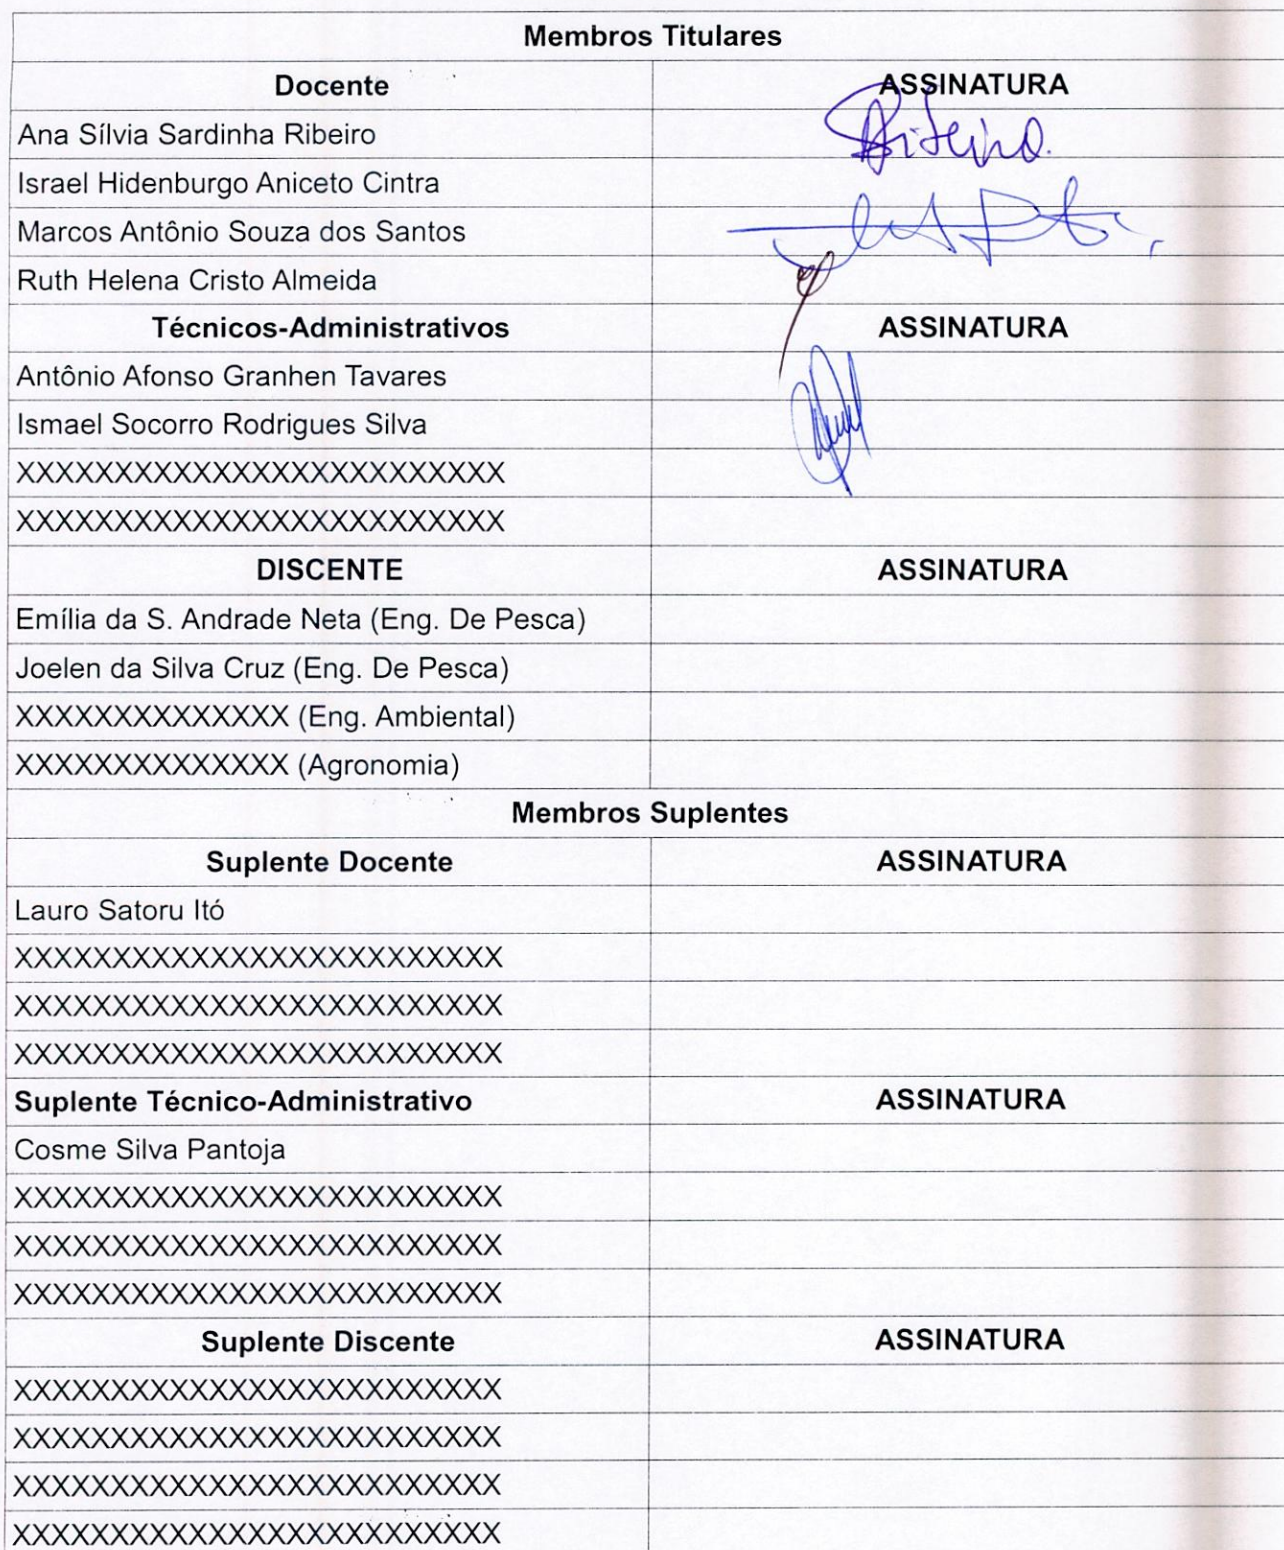 Membros Titulares
Docente ASSINATURA
Ana Sílvia Sardinha Ribeiro Ribeiro.
Israel Hidenburgo Aniceto Cintra
Marcos Antônio Souza dos Santos
Ruth Helena Cristo Almeida
Técnicos-Administrativos ASSINATURA
Antônio Afonso Granhen Tavares
Ismael Socorro Rodrigues Silva
XXXXXXXXXXXXXXXXXXXXXXXXX
XXXXXXXXXXXXXXXXXXXXXXXXX
DISCENTE ASSINATURA
Emília da S. Andrade Neta (Eng. De Pesca)
Joelen da Silva Cruz (Eng. De Pesca)
XXXXXXXXXXXXXX (Eng. Ambiental)
XXXXXXXXXXXXXX (Agronomia)
Membros Suplentes
Suplente Docente ASSINATURA
Lauro Satoru Itó
XXXXXXXXXXXXXXXXXXXXXXXXX
XXXXXXXXXXXXXXXXXXXXXXXXX
XXXXXXXXXXXXXXXXXXXXXXXXX
Suplente Técnico-Administrativo ASSINATURA
Cosme Silva Pantoja
XXXXXXXXXXXXXXXXXXXXXXXXX
XXXXXXXXXXXXXXXXXXXXXXXXX
XXXXXXXXXXXXXXXXXXXXXXXXX
Suplente Discente ASSINATURA
XXXXXXXXXXXXXXXXXXXXXXXXX
XXXXXXXXXXXXXXXXXXXXXXXXX
XXXXXXXXXXXXXXXXXXXXXXXXX
XXXXXXXXXXXXXXXXXXXXXXXXX